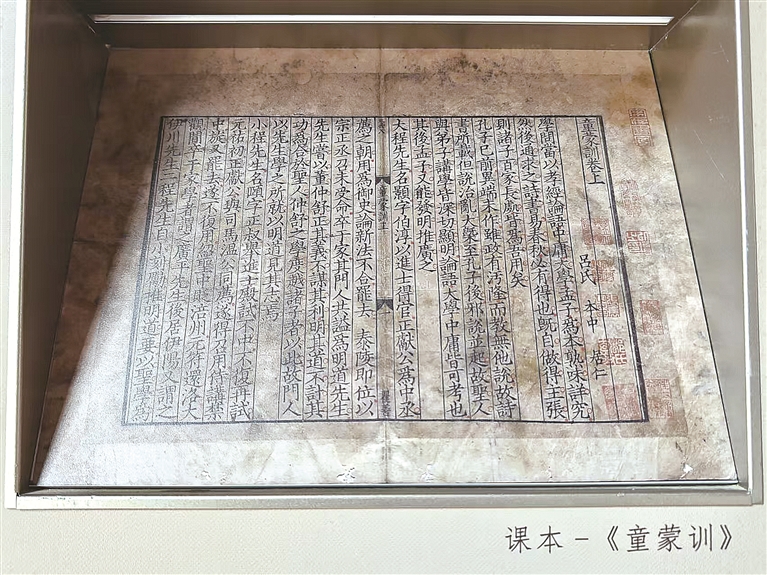 童蒙訓卷上
吕氏 本中 居仁
學問當以孝經論語中庸大學孟子為本熟味詳究
然後通求之詩書易春秋必有得也既自做得主張
則諸子百家長處皆為吾用矣
孔子已前異端未作雖政有汚隆而教無他説故詩
書所載但説治亂大槩至孔子後邪説並起故聖人
與弟子講學皆深切顯明論語大學中庸皆可考也
其後孟子又能發明推廣之
大程先生名顥字伯淳以進士得官正獻公為中丞
薦之朝用為御史論新法不合罷去 泰陵即位以
宗正丞召未受命卒于家其門人共謚為明道先生
先生嘗以董仲舒正其義不謀其利明其道不計其
功為合於聖人仲舒之學度越諸子者以此故門人
以先生學之所就以明道見其志焉
小程先生名頤字正叔舉進士殿試不中不復再試
元祐初正獻公與司馬溫公同薦遂得召用侍講禁
中旋又罷去遂不復用紹聖中竄涪州元符還洛大
觀間卒于家學者謂之廣平先生後居伊陽又謂之
伊川先生二程先生自小刻勵推明道要以聖學為
课本－《童蒙训》